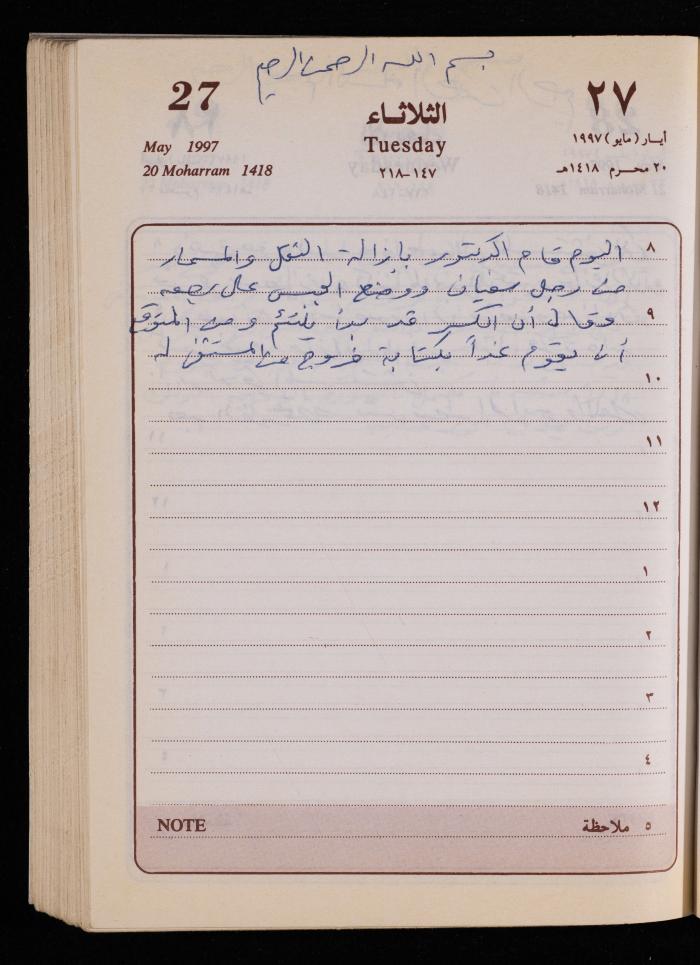 بسم الله الرحمن الرحيم
27
٢٧
الثلاثاء
Tuesday
May 1997
أيار (مايو) ١٩٩٧
20 Moharram 1418
٢٠ محرم ١٤١٨هـ
١٤٧-٢١٨
٨
اليوم قام الدكتور بإزالة الثقل والمسمار
من رجل سفيان ووضع الجبس على رجعه
٩
وقال أن الكسر قد بدأ يلتئم ومن المتوقع
أن يقوم غداً بكتابة خروج من المستشفى له
١٠
١١
١٢
١
٢
٣
٤
NOTE
٥ ملاحظة